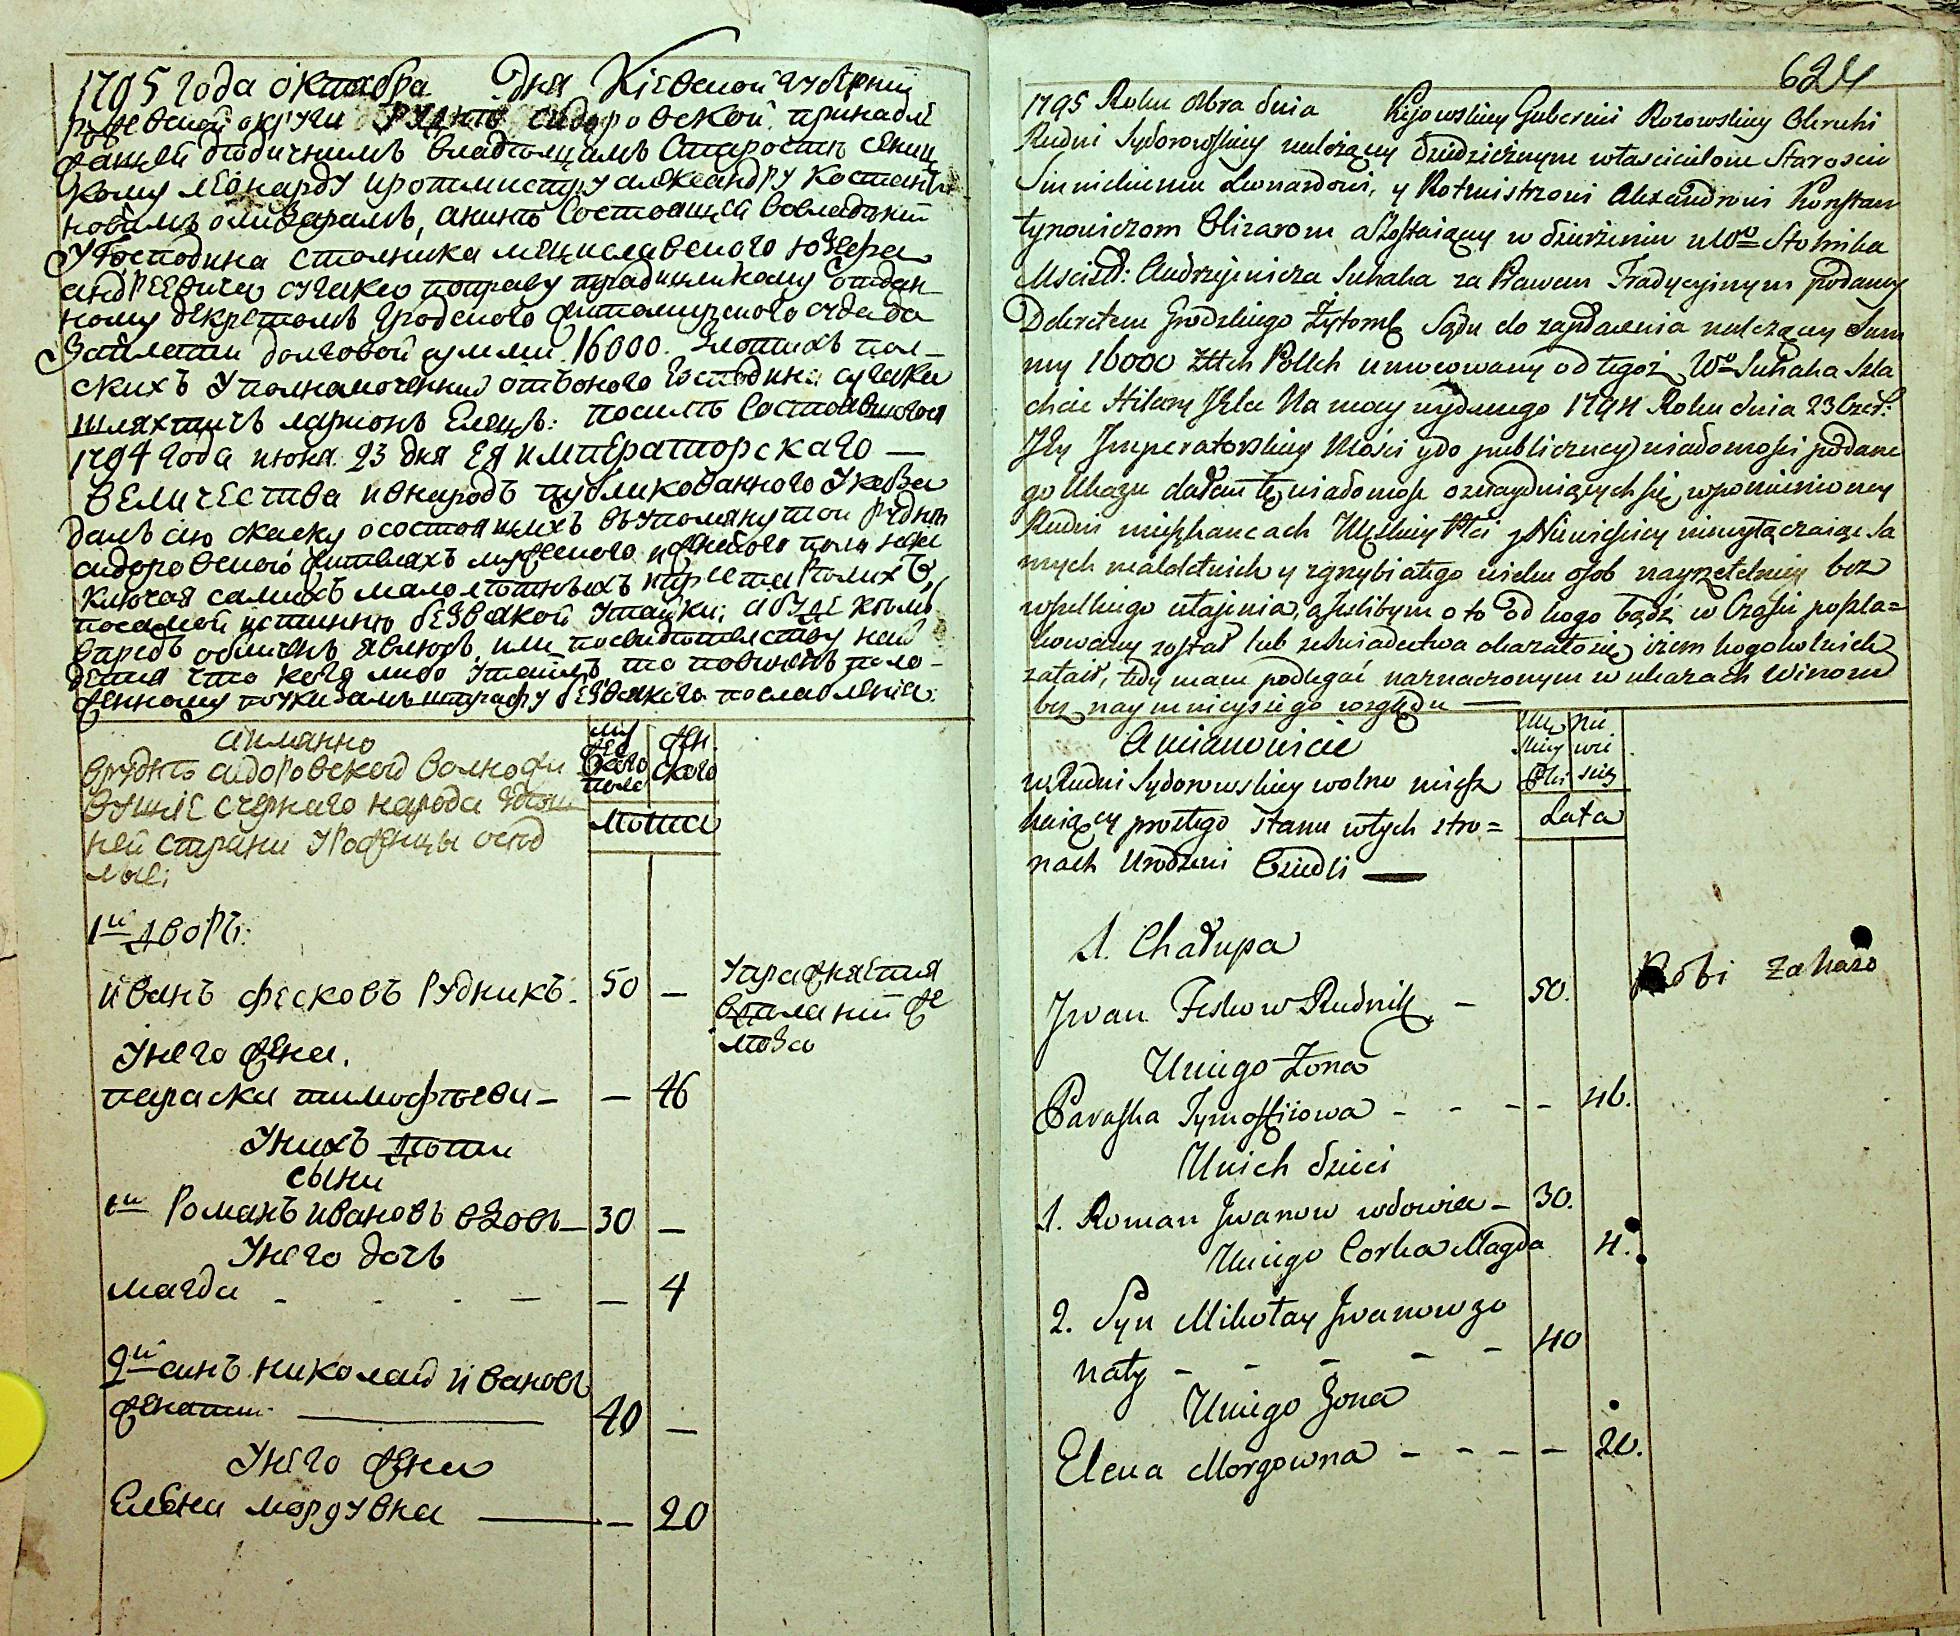 1795 года октабра дня Кіевской губернии
округи Рудни Сидоровской принадле
жащей дѣдичнимъ владѣлцамъ Старостѣ Сениц
кому Леонарду иротмистру александру Костанти
новичамъ олизарамъ, анинѣ состоящей вовладѣнии
У Господина столника мстиславского юзефа
андреевича сугака поправу традицийному отдан
ному декретомъ гродского житомирского суда до
Заплати долговой сумми 16000. Злотихъ пол-
скихъ Уполномоченний отъоного Господина сугака
шляхтичъ ларионъ Елецъ: посилѣ Состоявшогося
1794 года июня 23 дня Ея императорскаго —
величества ивнародъ публикованного Указа
далъ сию скаску осостоящихъ въупомянутой рудни
сидоровской жителяхъ мужеского иженского пола не
ключая самихъ малолѣтнѣихъ ипрестарѣлихъ,
посамой истиннѣ безвсякой Утайки; абуде кѣмъ
впредь обличенъ явлюсь, или посвидѣтелству най
дется что кого либо Утаилъ то повиненъ поло-
женному поуказамъ штрафу безвсякого послабленія:
аимянно
врудни сидоровской волножи
вущіе счернаго народа здѣш
ней страни Уроженцы осѣд
лые;
муж
ска
го
пола
жен
ского
Лѣта
1й дворъ:
иванъ фесковъ Рудникъ. 50 —
Упражняется
вдѣланіи же
лѣза
Унего жена.
параска тимофѣева — — 46
Унихъ дѣти
сыни
1й Романъ ивановъ вдовъ — 30 —
Унего дочь
магда - - - — — 4
2й синъ николай ивановъ
женати — 40 —
Унего жена
Елена моргувна — — 20
624
1795 Roku 8bra dnia Kijowskiey Gubernii Rozowskiey Okruhi
Rudni Sydorowskiey nalezący dziedzicznym własciciulom Staroscie
Sinnickiemu Leonardowi, y Rotmistrzowi Alexandrowi Konstan
tynowiczom Olizarom a Zostaiący w dzierzeniu u Wo Stolnika
Mscisł: Andrzyiewicza Suhaka za Prawem Tradycyinym podany
Dekretem Grodzkiego Żytom Sądu do zapłacenia nalezący Sum
my 16000 Złtch Polsch umocowany od tegoz Wo Suhaka Szla
chcic Hilary Jelec Na mocy wydanego 1794 Roku dnia 23 Czer:
Jey Imperatorskiey Mości y do publiczney wiadomości podane
go Ukazu dałem tę wiadomosc oznaydujących się, wpomienioney
Rudni mieszkancach Męskiey Płci y Niewieściey niewyłączaiąc Sa
mych małoletnich y zgrzybiałego wieku osob nayrzetelniey bez
wszelkiego utaienia, a jeslibym o to od kogo bądź w Czasie poszla=
kowany został lub zeswiadectwa okazało się iżem kogokolwiek
zataił, tedy mam podlegać naznaczonym w ukazach Winom
bez naymnieyszego względu —
A mianowicie
w Rudni Sydorowskiey wolno miesz
kaiący prostego stanu wtych stro=
nach Urodzeni Osiedli —
Mę
skiey
Płci
nie
wie
sciey
Lata
1. Chałupa
Jwan Feskow Rudnik - 50.
Robi zelazo
Uniego Żona
Paraska Tymoffiiowa - - - - 46.
Unich dzieci
1. Roman Jwanow wdowiec - 30.
Uniego Corka Magda 4.
2. Syn Mikołay Jwanow zo
naty - - - - - 40
Uniego Zona
Elena Morgowna - - - — 20.